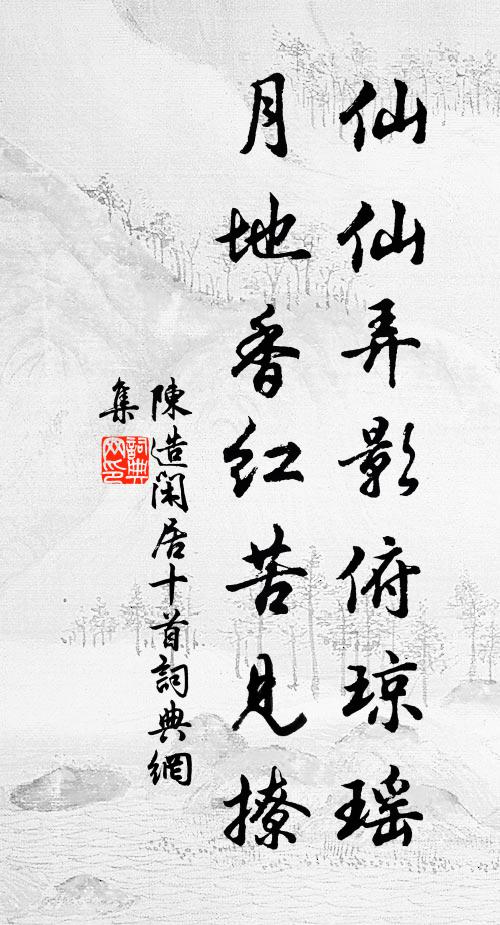 仙仙弄影俯琼瑶
月地香红苦见撩
陳造閑居十首詞典網
集
詞典網印